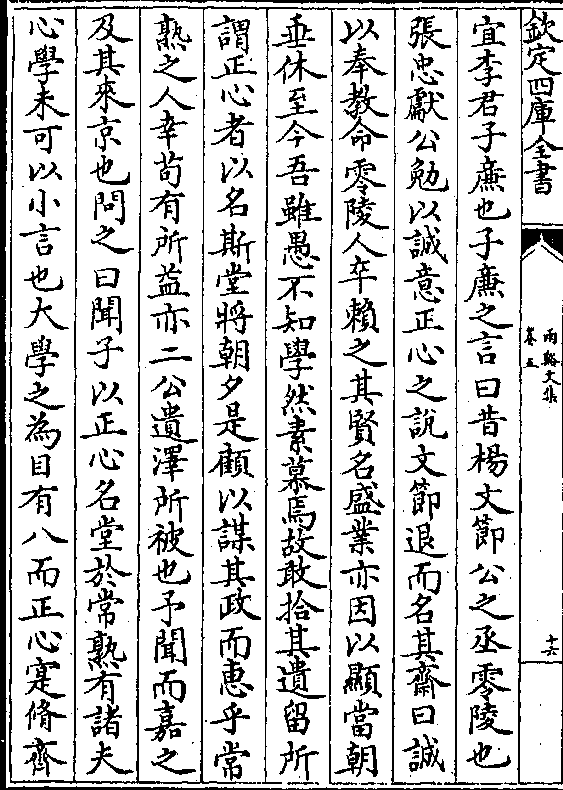 欽定四庫全書
兩谿文集
卷五
十六
宜李君子㢘也子㢘之言曰昔楊文節公之丞零陵也
張忠獻公勉以誠意正心之說文節退而名其齋曰誠
以奉教命零陵人卒賴之其賢名盛業亦因以顯當朝
垂休至今吾雖愚不知學然素慕焉故敢拾其遺留所
謂正心者以名斯堂將朝夕是顧以謀其政而惠乎常
熟之人幸茍有所益亦二公遺澤所被也予聞而嘉之
及其來京也問之曰聞子以正心名堂於常熟有諸夫
心學未可以小言也大學之為目有八而正心寔脩齊